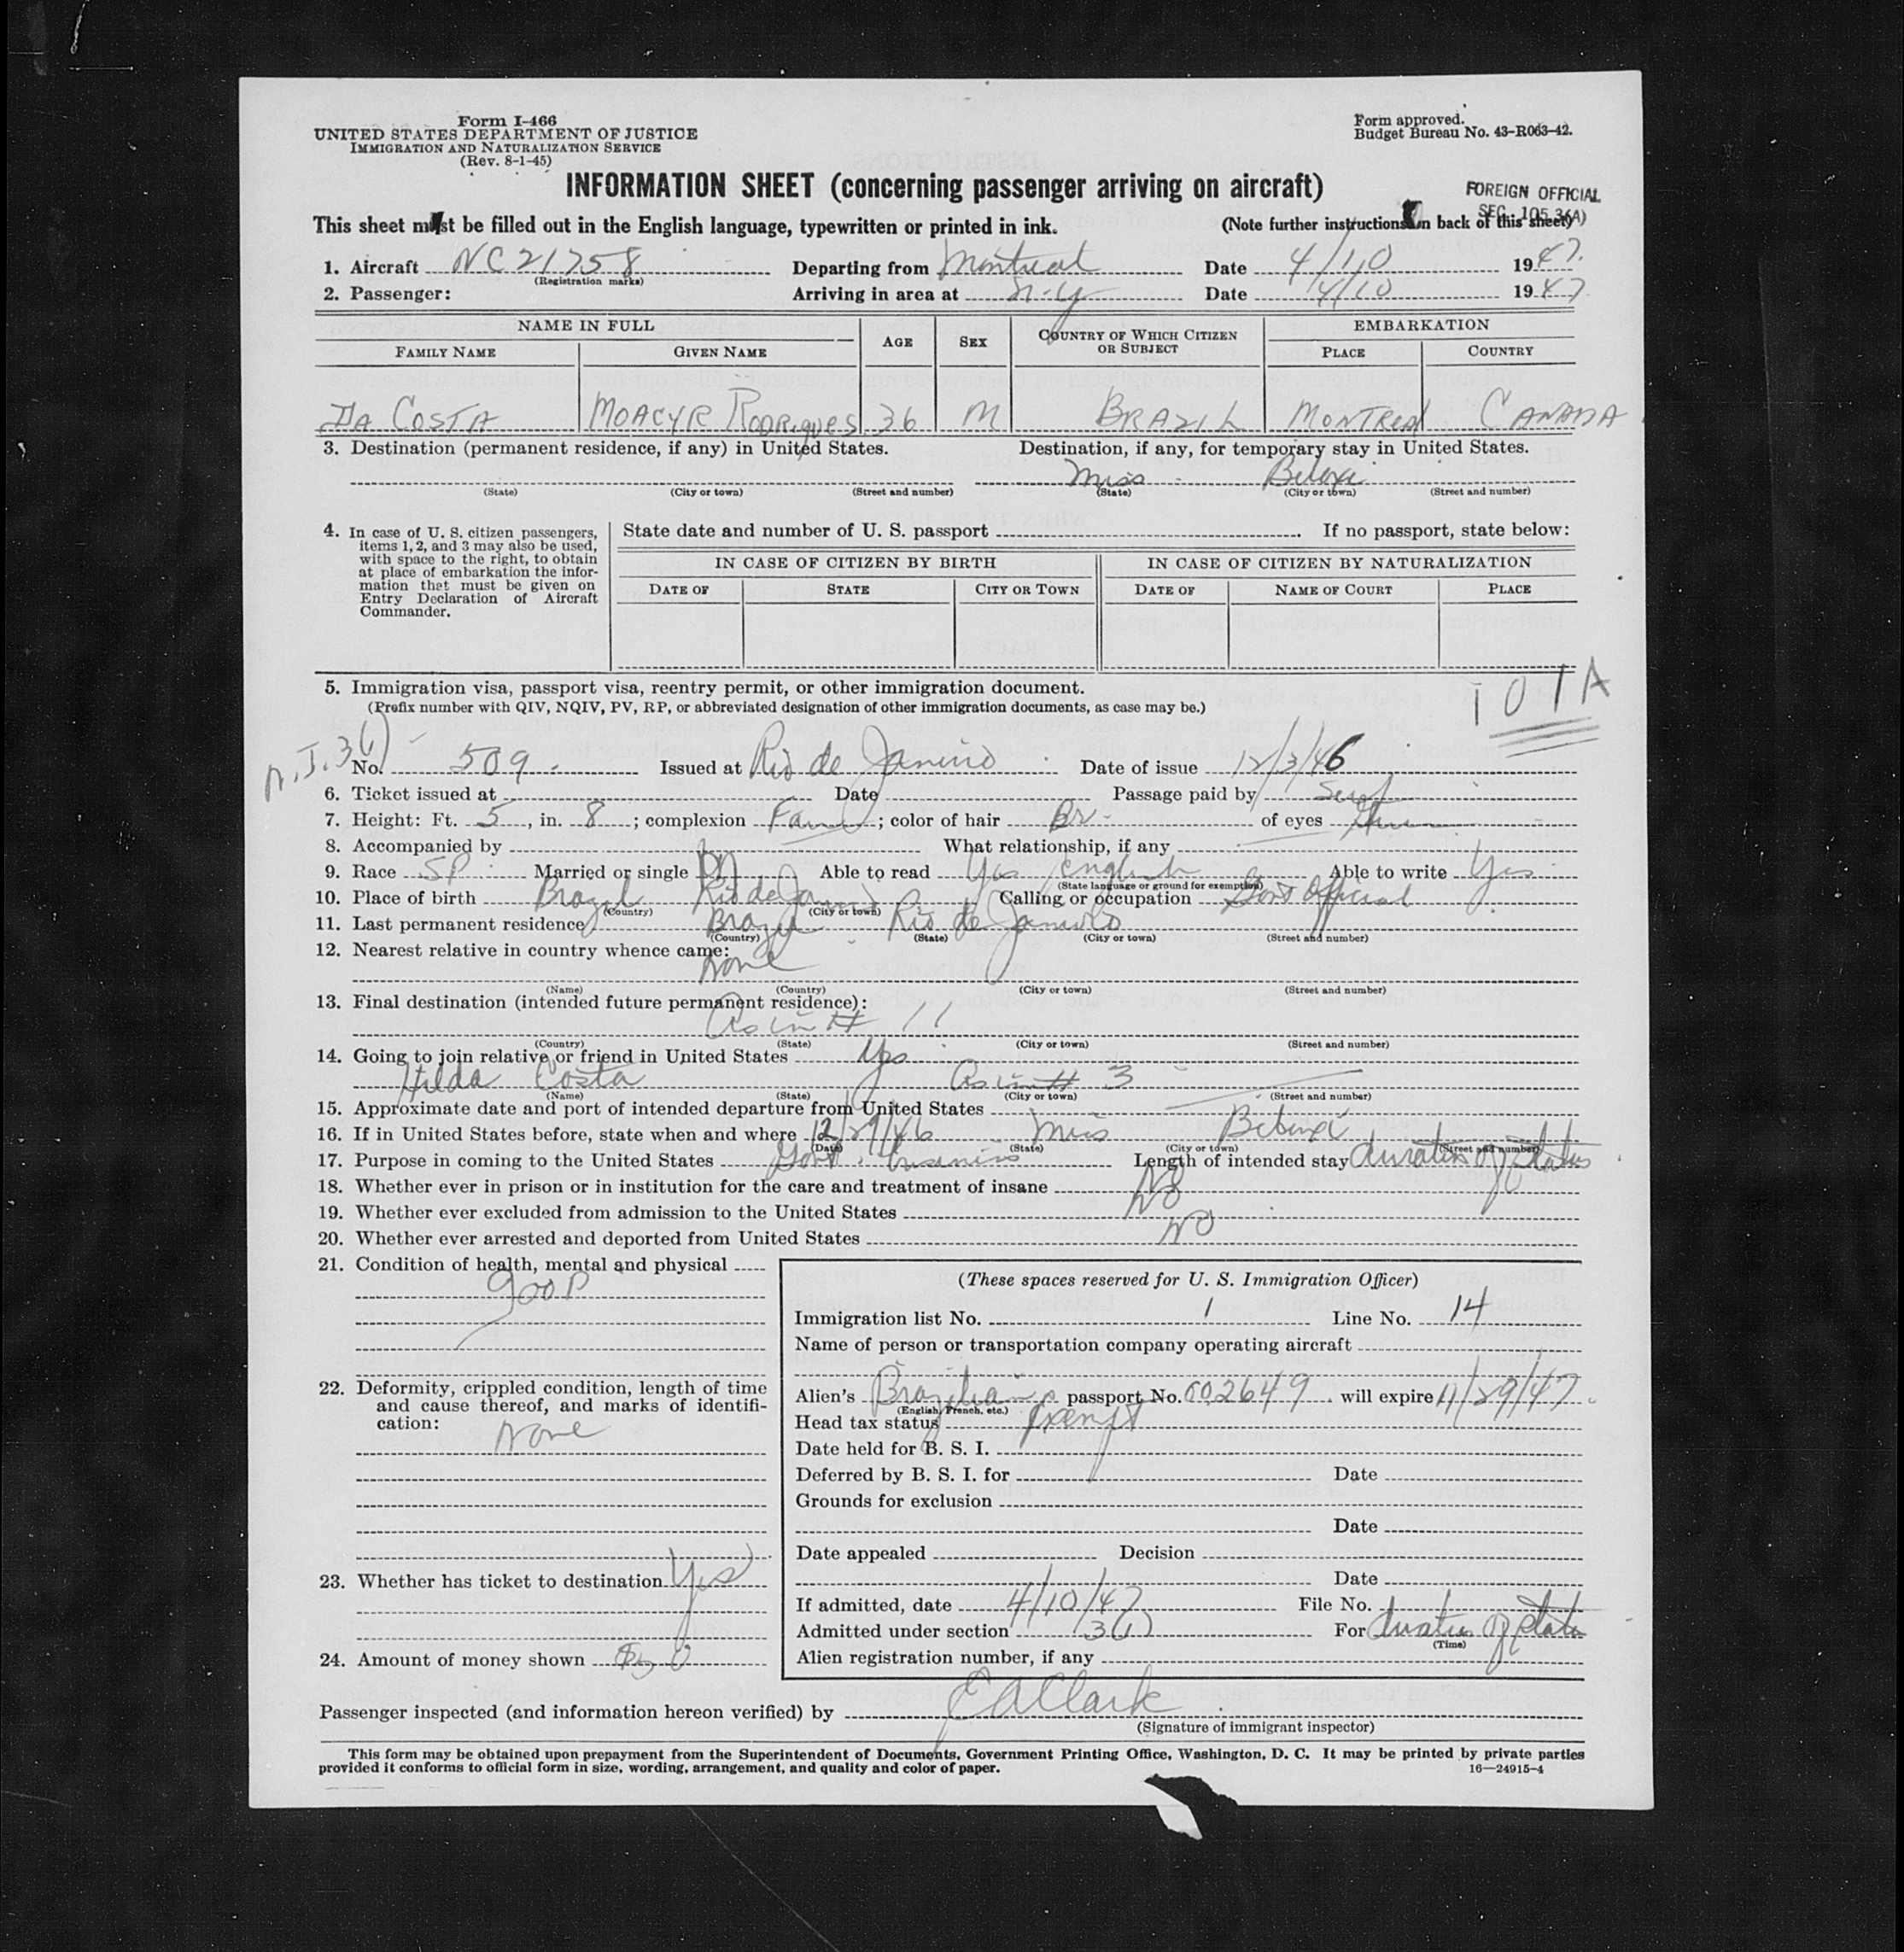 Form I-466
UNITED STATES DEPARTMENT OF JUSTICE
IMMIGRATION AND NATURALIZATION SERVICE
(Rev. 8-1-45)
Form approved.
Budget Bureau No. 43-R063-42.
INFORMATION SHEET (concerning passenger arriving on aircraft)
FOREIGN OFFICIAL
SEC. 105.3(A)
This sheet must be filled out in the English language, typewritten or printed in ink. (Note further instructions on back of this sheet)
1. Aircraft NC21758 Departing from Montreal Date 4/10 1947.
(Registration marks)
2. Passenger: Arriving in area at N.Y Date 4/10 1947
NAME IN FULL AGE SEX COUNTRY OF WHICH CITIZEN OR SUBJECT EMBARKATION
FAMILY NAME GIVEN NAME PLACE COUNTRY
DA COSTA MOACYR RODRIGUES 36 M BRAZIL MONTREAL CANADA
3. Destination (permanent residence, if any) in United States. Destination, if any, for temporary stay in United States.
Miss Biloxi
(State) (City or town) (Street and number) (State) (City or town) (Street and number)
4. In case of U. S. citizen passengers, items 1, 2, and 3 may also be used, with space to the right, to obtain at place of embarkation the information that must be given on Entry Declaration of Aircraft Commander.
State date and number of U. S. passport If no passport, state below:
IN CASE OF CITIZEN BY BIRTH IN CASE OF CITIZEN BY NATURALIZATION
DATE OF STATE CITY OR TOWN DATE OF NAME OF COURT PLACE
101A
5. Immigration visa, passport visa, reentry permit, or other immigration document.
(Prefix number with QIV, NQIV, PV, RP, or abbreviated designation of other immigration documents, as case may be.)
3(1)
No. 509 Issued at Rio de Janeiro Date of issue 12/3/46
6. Ticket issued at Date Passage paid by Self
7. Height: Ft. 5, in. 8; complexion Fair; color of hair Br. of eyes
8. Accompanied by What relationship, if any
9. Race SP Married or single M Able to read Yes English Able to write Yes
(State language or ground for exemption)
10. Place of birth Brazil Rio de Janeiro Calling or occupation Govt Official
(Country) (City or town)
11. Last permanent residence Brazil Rio de Janeiro
(Country) (State) (City or town) (Street and number)
12. Nearest relative in country whence came:
None
(Name) (Country) (City or town) (Street and number)
13. Final destination (intended future permanent residence):
As in # 11
(Country) (State) (City or town) (Street and number)
14. Going to join relative or friend in United States Yes
Hilda Costa As in # 3
(Name) (State) (City or town) (Street and number)
15. Approximate date and port of intended departure from United States
16. If in United States before, state when and where 12/29/46 Miss Biloxi
(Date) (State) (City or town) (Street and number)
17. Purpose in coming to the United States Govt. business Length of intended stay duration of status
18. Whether ever in prison or in institution for the care and treatment of insane No
19. Whether ever excluded from admission to the United States No
20. Whether ever arrested and deported from United States NO
21. Condition of health, mental and physical
good
22. Deformity, crippled condition, length of time and cause thereof, and marks of identification:
None
23. Whether has ticket to destination Yes
24. Amount of money shown $50
(These spaces reserved for U. S. Immigration Officer)
Immigration list No. 1 Line No. 14
Name of person or transportation company operating aircraft
Alien's Brazilian passport No. 002649 will expire 11/29/47
(English, French, etc.)
Head tax status Exempt
Date held for B. S. I.
Deferred by B. S. I. for Date
Grounds for exclusion
Date
Date appealed Decision
Date
If admitted, date 4/10/47 File No.
Admitted under section 3(1) For duration of status
(Time)
Alien registration number, if any
Passenger inspected (and information hereon verified) by E A Clark
(Signature of immigrant inspector)
This form may be obtained upon prepayment from the Superintendent of Documents, Government Printing Office, Washington, D. C. It may be printed by private parties
provided it conforms to official form in size, wording, arrangement, and quality and color of paper. 16—24915-4